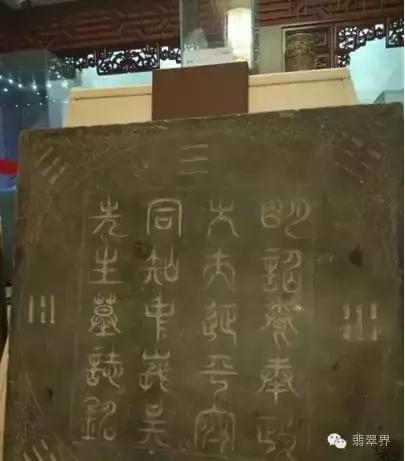 明詔奉政
大夫延平府
同知中峩吳
先生墓誌銘
翡翠界